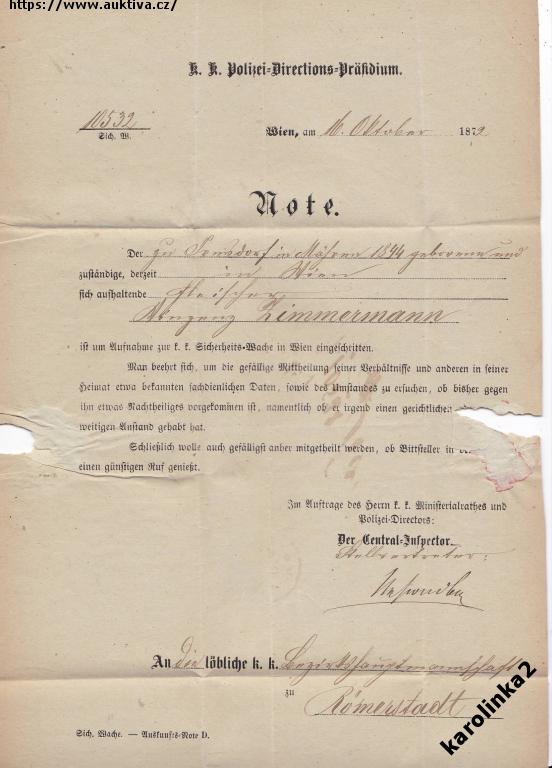 https://www.auktiva.cz/
K. K. Polizei-Directions-Präsidium.
10532
Sich. W.
Wien, am 16. Oktober 1872
Note.
Der zu in Mähren 1844 geborene und
zuständige, derzeit in Wien
sich aufhaltende Fleischer
Zimmermann
ist um Aufnahme zur k. k. Sicherheits-Wache in Wien eingeschritten.
Man beehrt sich, um die gefällige Mittheilung seiner Verhältnisse und anderen in seiner
Heimat etwa bekannten sachdienlichen Daten, sowie des Umstandes zu ersuchen, ob bisher gegen
ihn etwas Nachtheiliges vorgekommen ist, namentlich ob er irgend einen gerichtlichen
weitigen Anstand gehabt hat.
Schließlich wolle auch gefälligst anher mitgetheilt werden, ob Bittsteller in
einen günstigen Ruf genießt.
Im Auftrage des Herrn k. k. Ministerialrathes und
Polizei-Directors:
Der Central-Inspector.
Stellvertreter:
An die löbliche k. k. Bezirkshauptmannschaft
zu
Römerstadt
Sich. Wache. — Auskunfts-Note D.
karolinka2